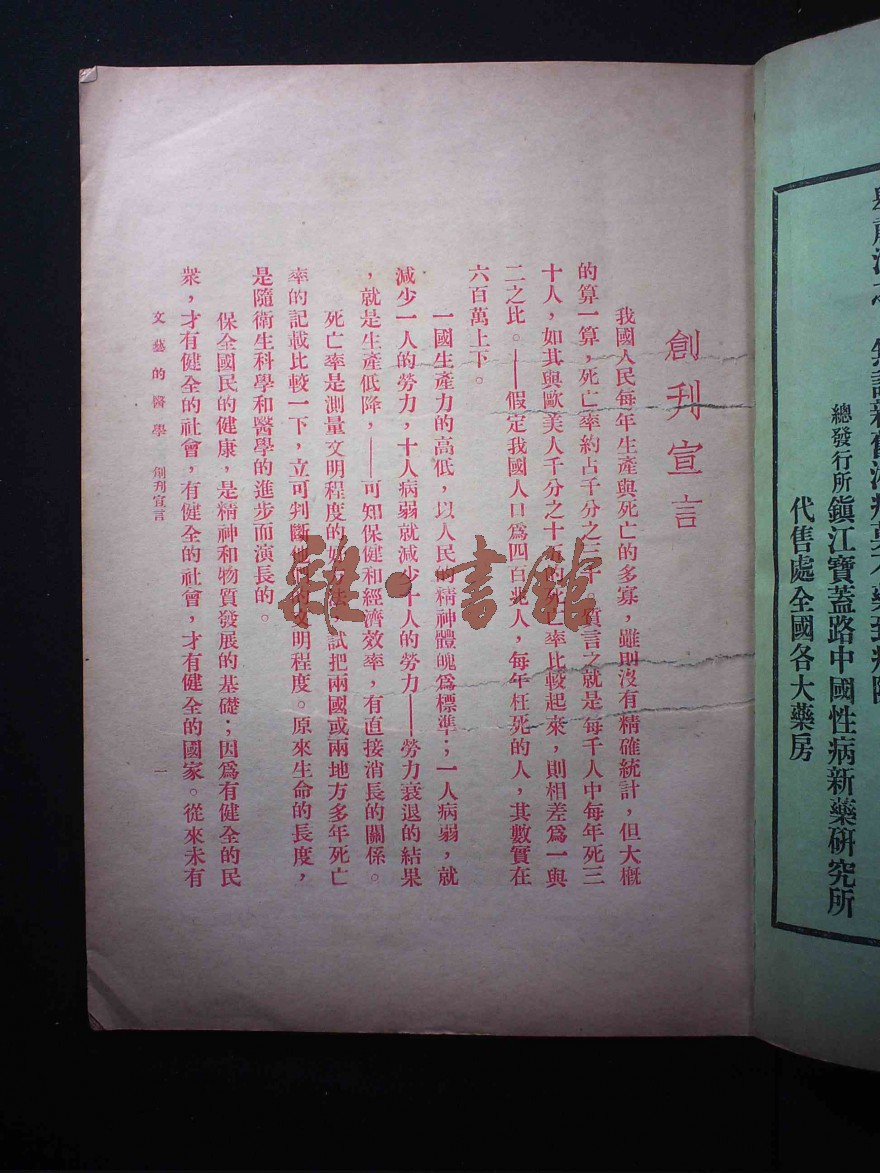 創刊宣言
我國人民每年生產與死亡的多寡，雖則沒有精確統計，但大概
的算一算，死亡率約占千分之三十。質言之就是每千人中每年死三
十人，如其與歐美人千分之十五的死亡率比較起來，則相差爲一與
二之比。——假定我國人口爲四百兆人，每年枉死的人，其數實在
六百萬上下。
一國生產力的高低，以人民的精神體魄爲標準；一人病弱，就
減少一人的勞力，十人病弱就減少十人的勞力——勞力衰退的結果
，就是生產低降，——可知保健和經濟效率，有直接消長的關係。
死亡率是測量文明程度的 試把兩國或兩地方多年死亡
率的記載比較一下，立可判斷他們的文明程度。原來生命的長度，
是隨衛生科學和醫學的進步而演長的。
保全國民的健康，是精神和物質發展的基礎；因爲有健全的民
衆，才有健全的社會，有健全的社會，才有健全的國家。從來未有
文藝的醫學 創刊宣言
一
雜·書館
總發行所鎮江寶蓋路中國性病新藥研究所
代售處全國各大藥房